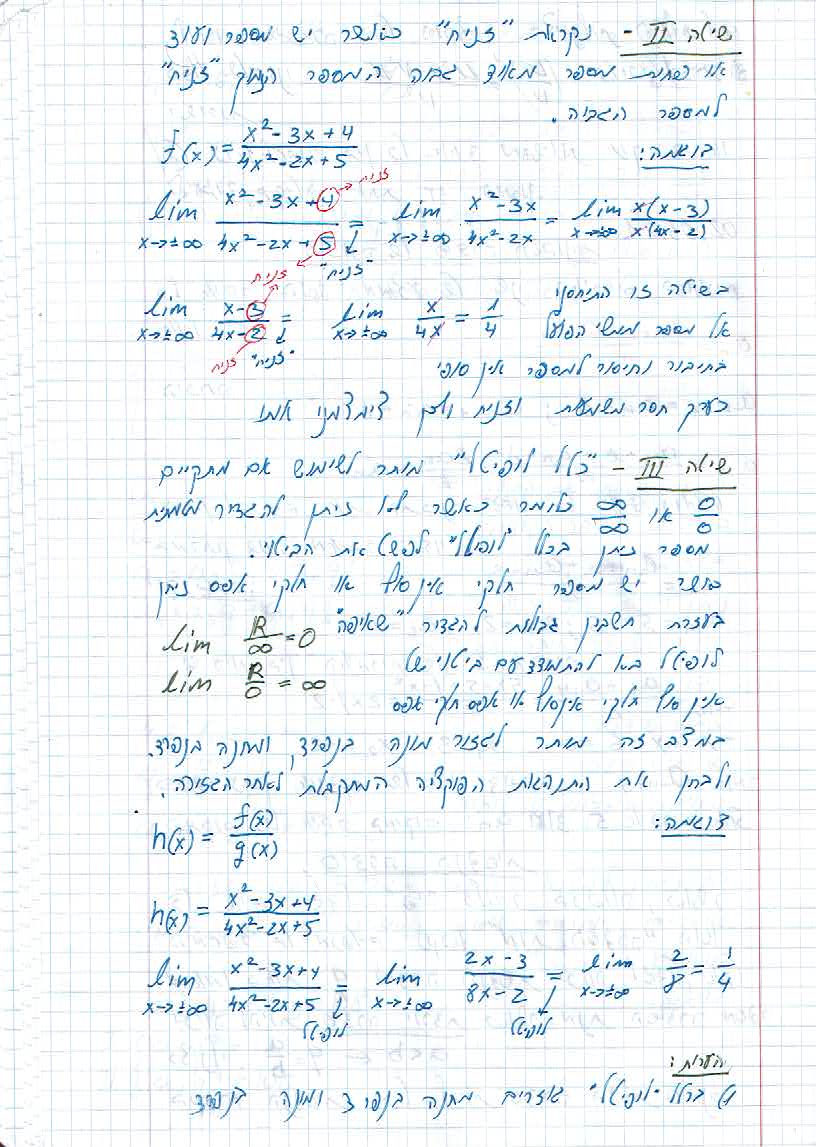 שיטה II - נקראת "זניח" כאשר יש מספר ועוד
או פחות מספר מאוד גבוה המספר הנמוך "זניח"
למספר הגבוה.
דוגמה:
f(x) = \frac{x^2-3x+4}{4x^2-2x+5}
זניח
\lim_{x->±∞} \frac{x^2-3x+4}{4x^2-2x+5} = \lim_{x->±∞} \frac{x^2-3x}{4x^2-2x} = \lim_{x->±∞} \frac{x(x-3)}{x(4x-2)}
זניח "זניח"
\lim_{x->±∞} \frac{x-3}{4x-2} = \lim_{x->±∞} \frac{x}{4x} = \frac{1}{4}
זניח "זניח"
בשיטה זו התיחסנו
אל מספר ממשי הפועל
בחיבור וחיסור למספר אין סופי
כערך חסר משמעות וזניח ולכן צימצמנו אותו
שיטה III - "כלל לופיטל" מותר לשימוש אם מתקיים
\frac{0}{0} או \frac{∞}{∞} כלומר כאשר לא ניתן להגדיר
מספר ניתן בכלל "לופיטל" לפשט את הביטוי.
כאשר יש מספר חלקי אינסוף או חלקי אפס ניתן
בעזרת חשבון גבולות להגדיר "שאיפה"
lim \frac{R}{∞} = 0
לופיטל בא להתמודד עם ביטוי של
lim \frac{R}{0} = ∞
אין סוף חלקי אינסוף או אפס חלקי אפס
במצב זה מותר לגזור מונה בנפרד, ומחנה בנפרד.
ולבחן את התנהגות הפוקציה המתקבלת לאחר הגזירה.
דוגמה:
h(x) = \frac{f(x)}{g(x)}
h(x) = \frac{x^2-3x+4}{4x^2-2x+5}
\lim_{x->±∞} \frac{x^2-3x+4}{4x^2-2x+5} = \lim_{x->±∞} \frac{2x-3}{8x-2} = \lim_{x->±∞} \frac{2}{8} = \frac{1}{4}
לופיטל לופיטל
הערות:
1) בכלל "לופיטל" גוזרים מחנה בנפרד ומונה בנפרד